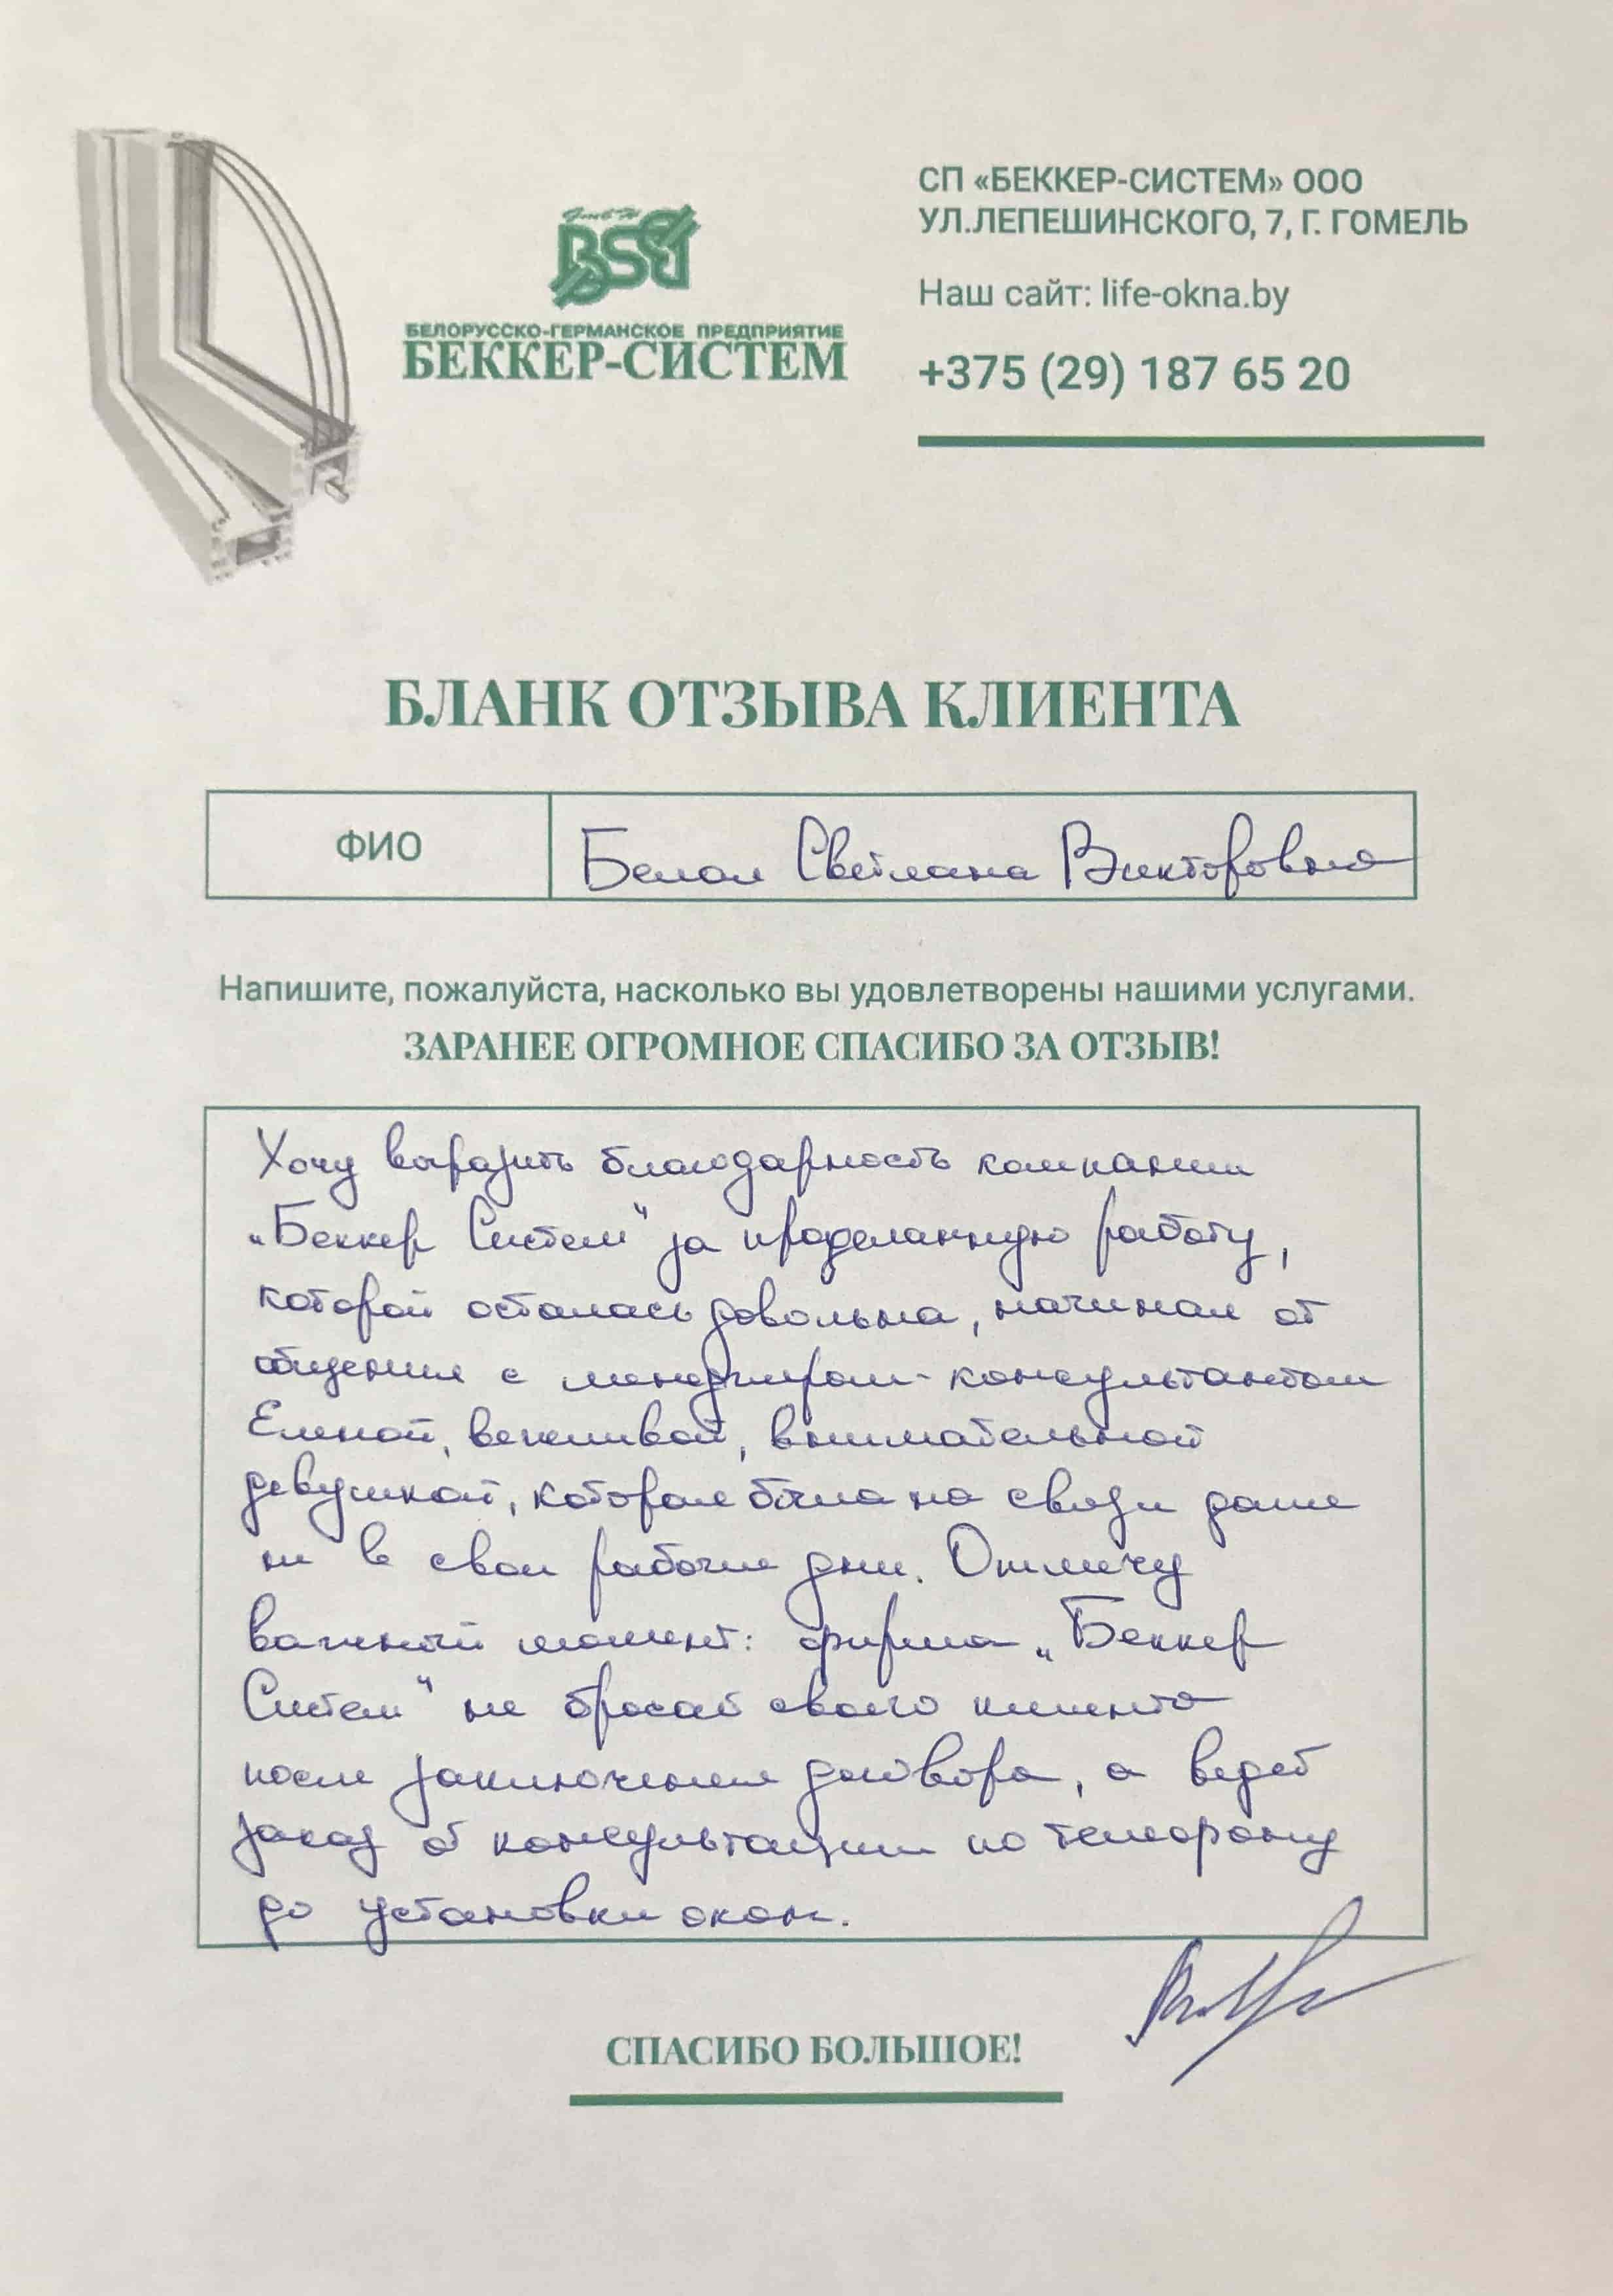 СП «БЕККЕР-СИСТЕМ» ООО
УЛ.ЛЕПЕШИНСКОГО, 7, Г. ГОМЕЛЬ
Наш сайт: life-okna.by
+375 (29) 187 65 20
GmbH
BSG
БЕЛОРУССКО-ГЕРМАНСКОЕ ПРЕДПРИЯТИЕ
БЕККЕР-СИСТЕМ
БЛАНК ОТЗЫВА КЛИЕНТА
ФИО
Белая Светлана Викторовна
Напишите, пожалуйста, насколько вы удовлетворены нашими услугами.
ЗАРАНЕЕ ОГРОМНОЕ СПАСИБО ЗА ОТЗЫВ!
Хочу выразить благодарность компании
„Беккер Систем" за проделанную работу,
которой осталась довольна, начиная от
общения с менеджером-консультантом
Еленой, вежливой, внимательной
девушкой, которая была на связи даже
не в свои рабочие дни. Отмечу
важный момент: фирма „Беккер
Систем" не бросает своего клиента
после заключения договора, а ведет
заказ от консультации по телефону
до установки окон.
СПАСИБО БОЛЬШОЕ!